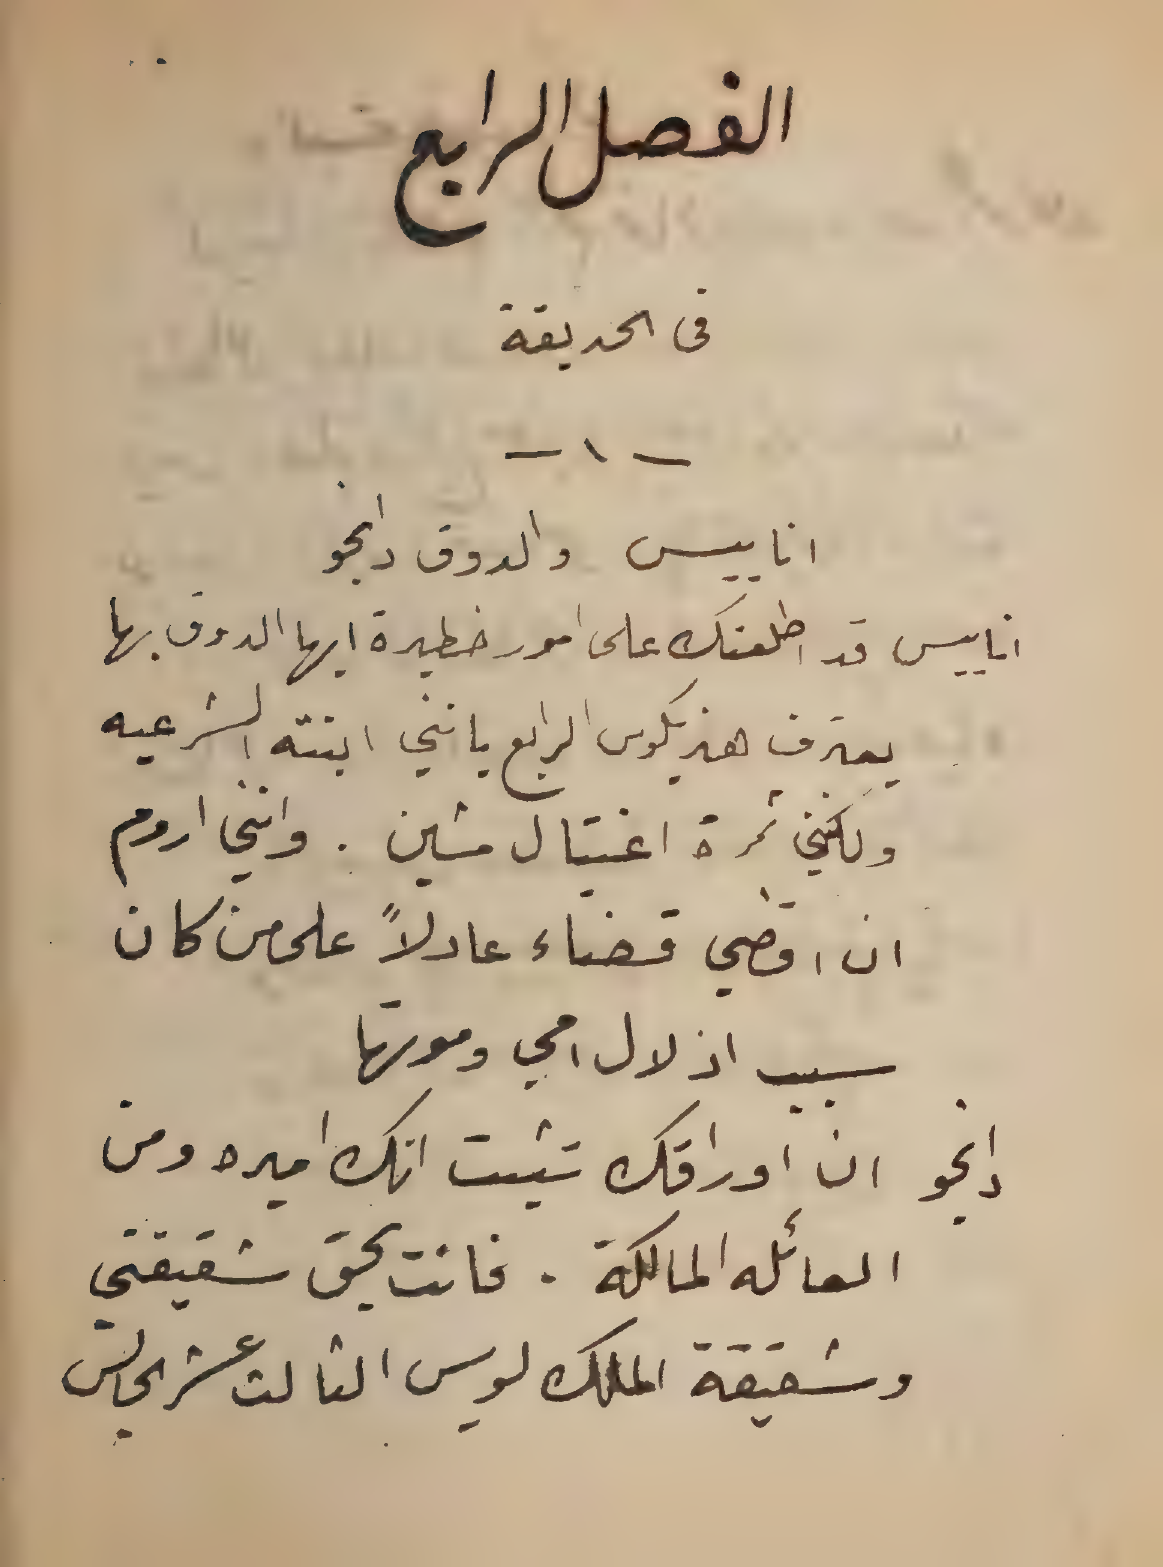 الفصل الرابع
فى الحديقة
— ١ —
اناييس والدوق دانجو
اناييس قد اطلعتك على امور خطيرة ايها الدوق بها
يعترف هنريكوس الرابع بانني ابنته الشرعيه
ولكنني ثمرة اغتيال مشين . وانني اروم
ان اقضي قضاء عادلاً على من كان
سبب اذلال امي وموتها
دانجو ان اوراقك تثبت انك اميره ومن
العائله المالكة . فانت بحق شقيقتي
وشقيقة الملك لويس الثالث عشر الجالس